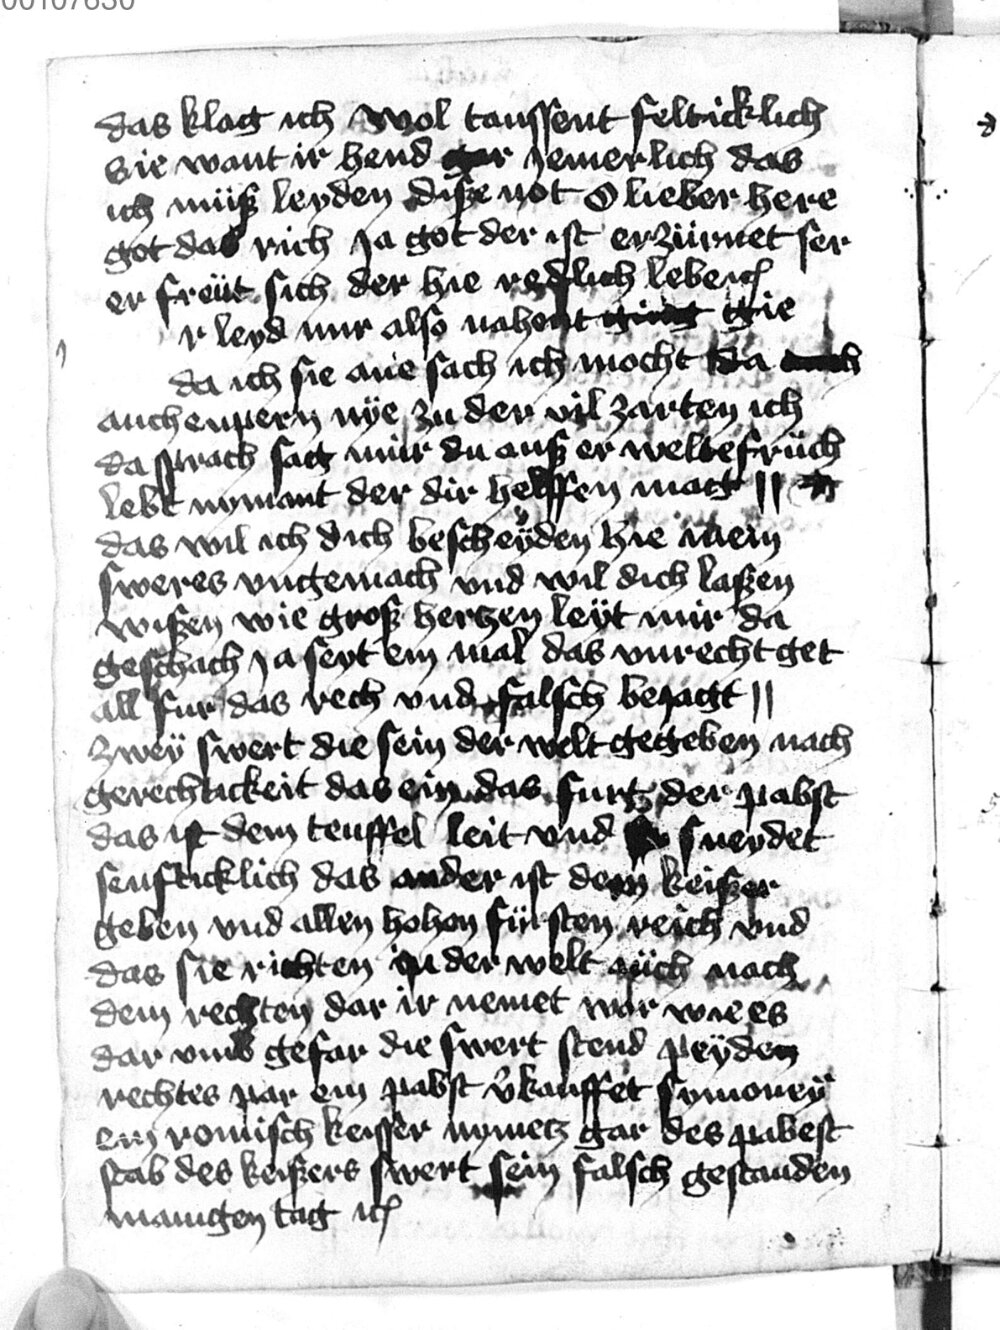 00107630
das klag ich wol taussent felticklich
Sie want ir hend gar jemerlich das
ich müß leyden diße not O lieber here
got das rich Ja got der ist erzürnet ser
er freüt sich der hie redlich lebe ich
r leyd mir also nahent gie
da ich sie ane sach ich mocht da
auch enpern nÿe zu der vil zarten ich
da sprach sag mir du auß er welte früch
lebt nymant der dir helffen mag ||
das wil ich dich bescheÿden hie mein
sweres vngemach vnd wil dich laßen
wißen wie groß herczen leÿt mir da
geschach Ja seyt ein mal das vnrecht get
all fur das rech vnd falsch bejagt ||
Zweÿ swert die sein der welt gegeben nach
gerechtickeit das ein das furt der pabst
das ist dem teuffel leit vnd sneydet
senfticklich das ander ist dem keißer
geben vnd allen hohen fürsten reich vnd
das sie richten in der welt auch nach
dem rechten dar ir nemet war wie es
dar vmb gefar die swert stend peÿden
rechtes par ein pabst v̓kauffet symoneÿ
ein romisch keisser nymetz gar des pabest
stab des keißers swert sein falsch gestanden
manigen tag ich